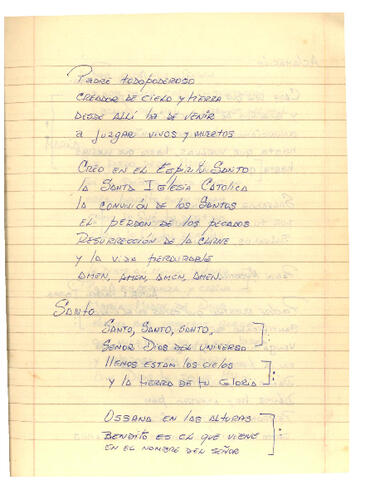 Padre todopoderoso
creador de cielo y tierra
desde allí ha de venir
a juzgar vivos y muertos
Creo en el Espíritu Santo
la Santa Iglesia Catolica
la comunión de los Santos
el perdon de los pecados
Resurrección de la carne
y la vida perdurable
Amen, amen, amen, amen.
Santo
Santo, santo, santo,
Señor Dios del universo
llenos estan los cielos
y la tierra de tu gloria
Ossana en las alturas
Bendito es el que viene
en el nombre del Señor